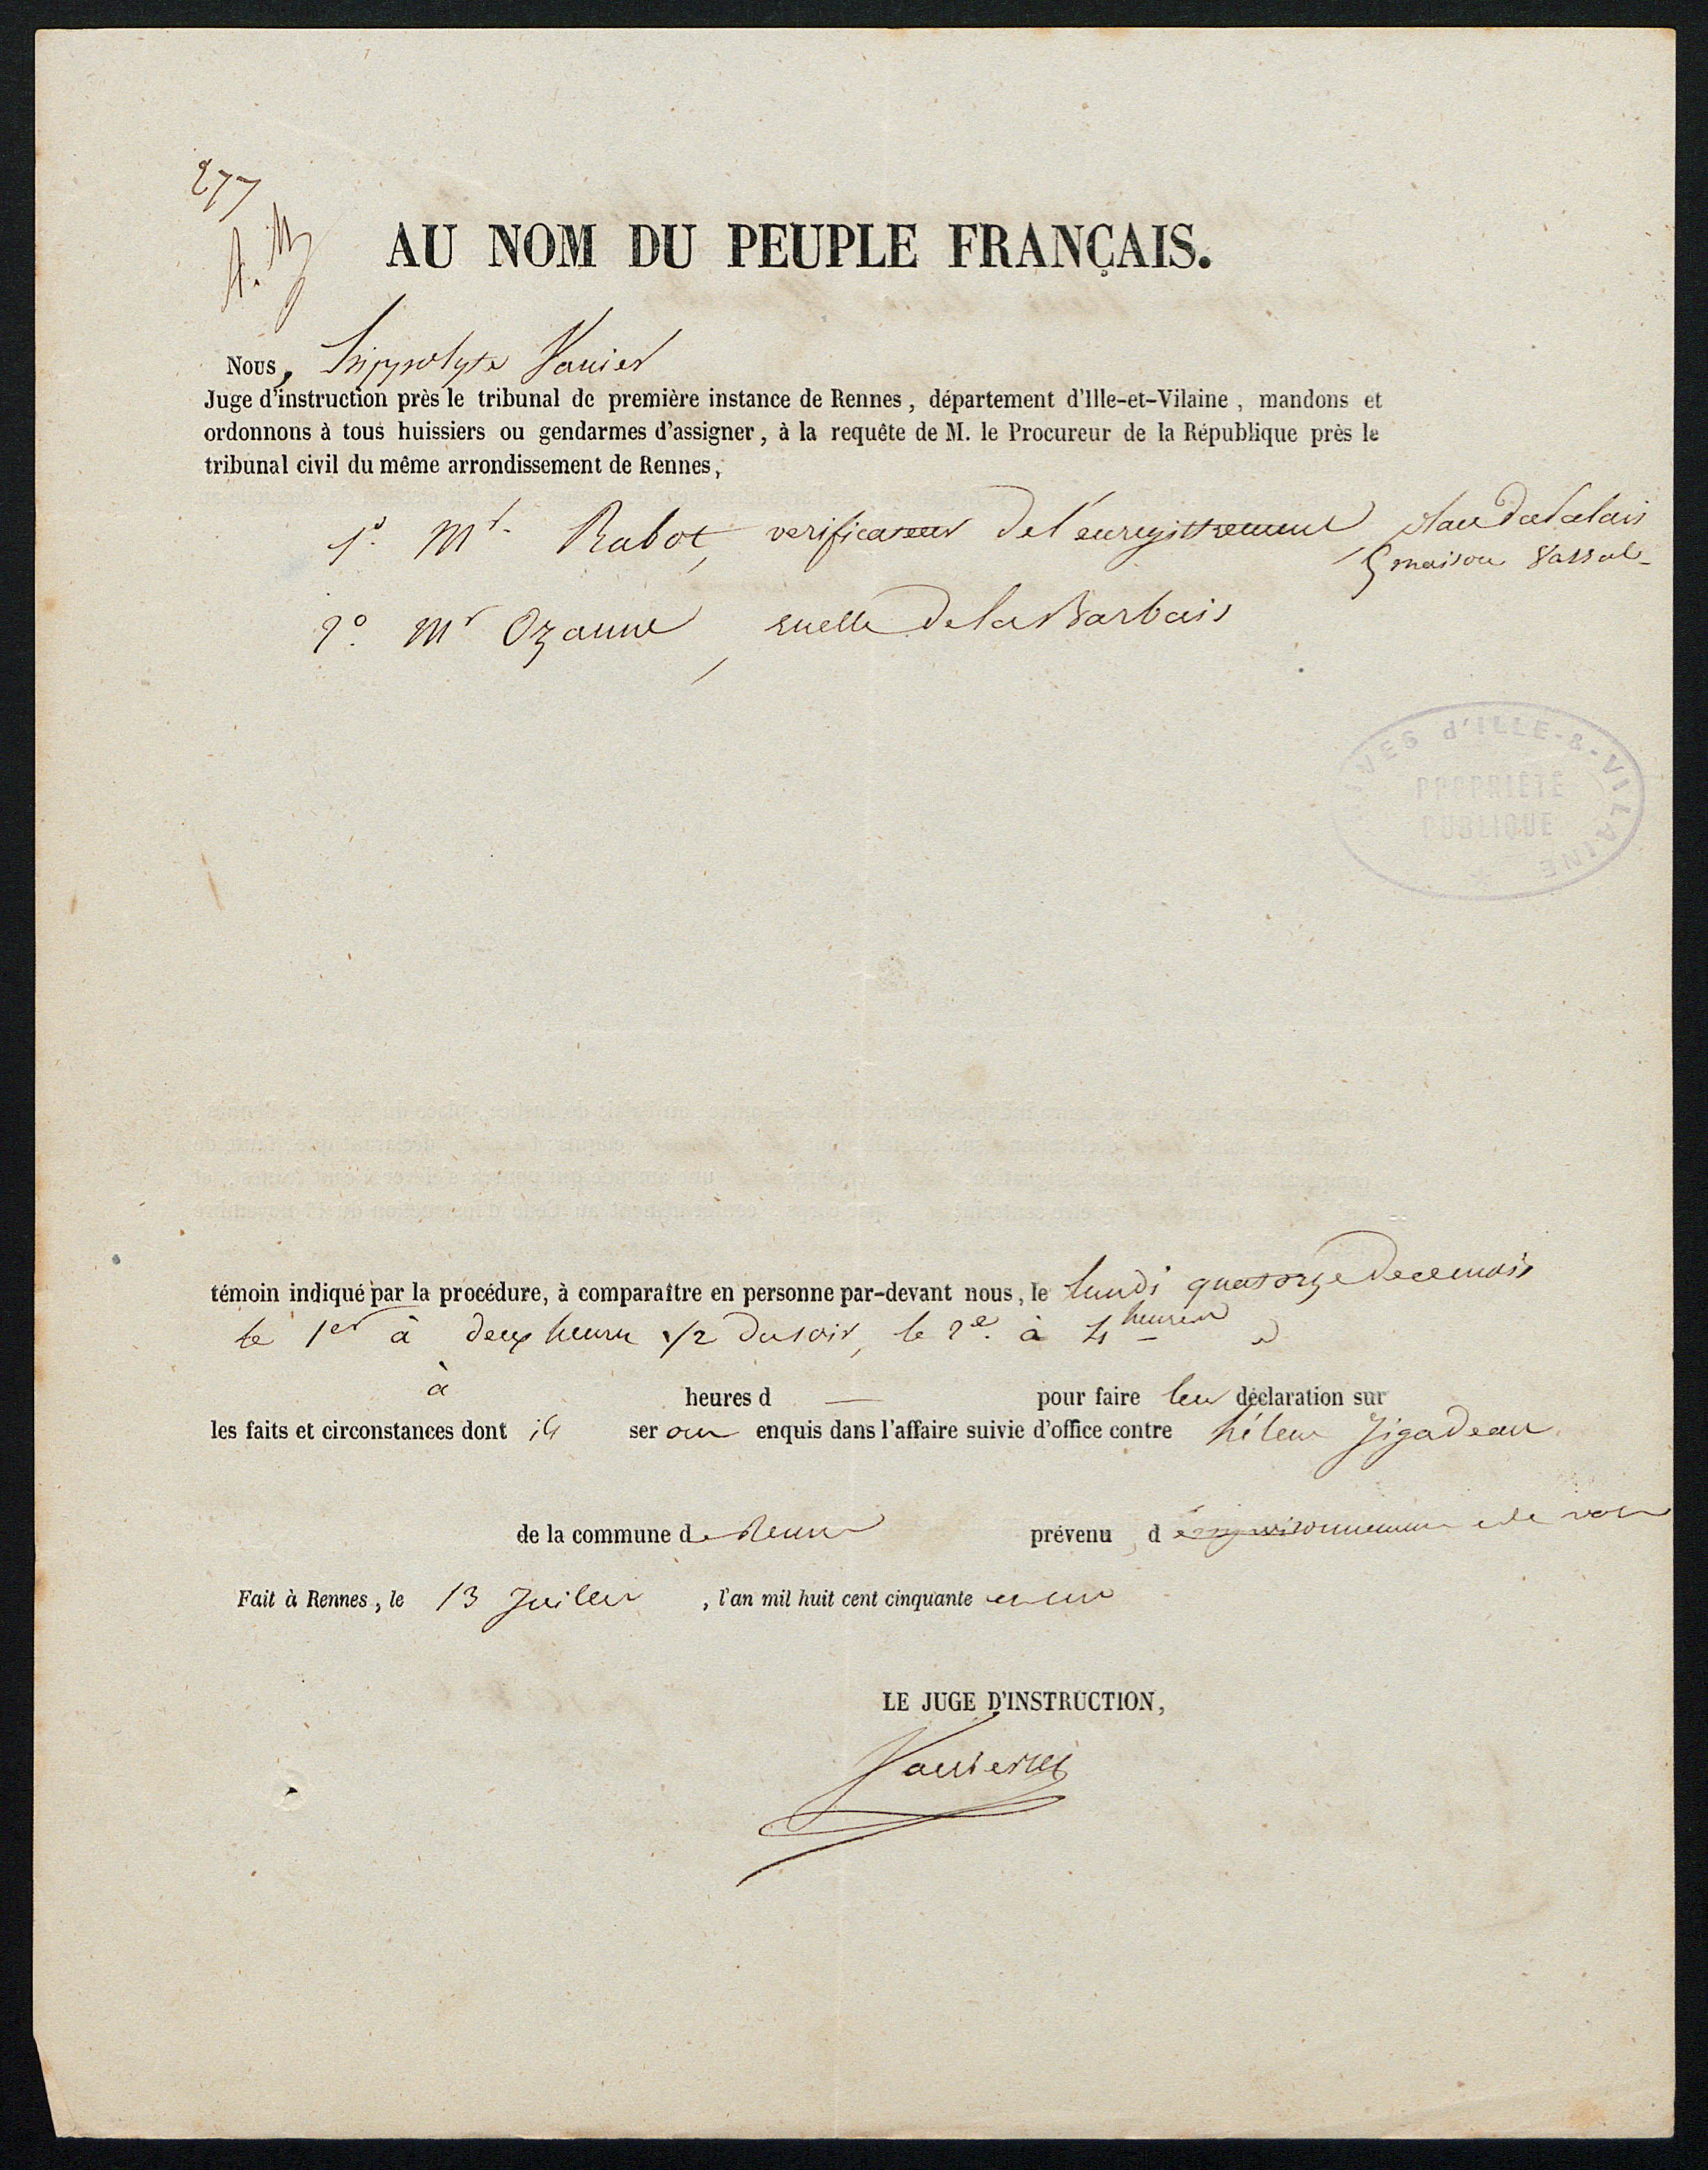 277
A. M
AU NOM DU PEUPLE FRANÇAIS.
Nous, hippolyte Vanier
Juge d'instruction près le tribunal de première instance de Rennes, département d'Ille-et-Vilaine, mandons et
ordonnons à tous huissiers ou gendarmes d'assigner, à la requête de M. le Procureur de la République près le
tribunal civil du même arrondissement de Rennes,
1º. Mr. Rabot, verificateur de l'enregistrement, place du Palais
maison Vassal
2º. Mr Ozanne, ruelle de la Barbais
ARCHIVES d'ILLE-&-VILAINE
PROPRIÉTÉ
PUBLIQUE
témoin indiqué par la procédure, à comparaître en personne par-devant nous, le lundi quatorze de ce mois
le 1er à deux heures 1/2 du soir, le 2e. à 4 heures
à heures d — pour faire leur déclaration sur
les faits et circonstances dont ils seront enquis dans l'affaire suivie d'office contre hélène Jégadeau
de la commune de Rennes prévenu d'empoisonnement et de vols
Fait à Rennes, le 13 Juillet, l'an mil huit cent cinquante et un
LE JUGE D'INSTRUCTION,
Vanier